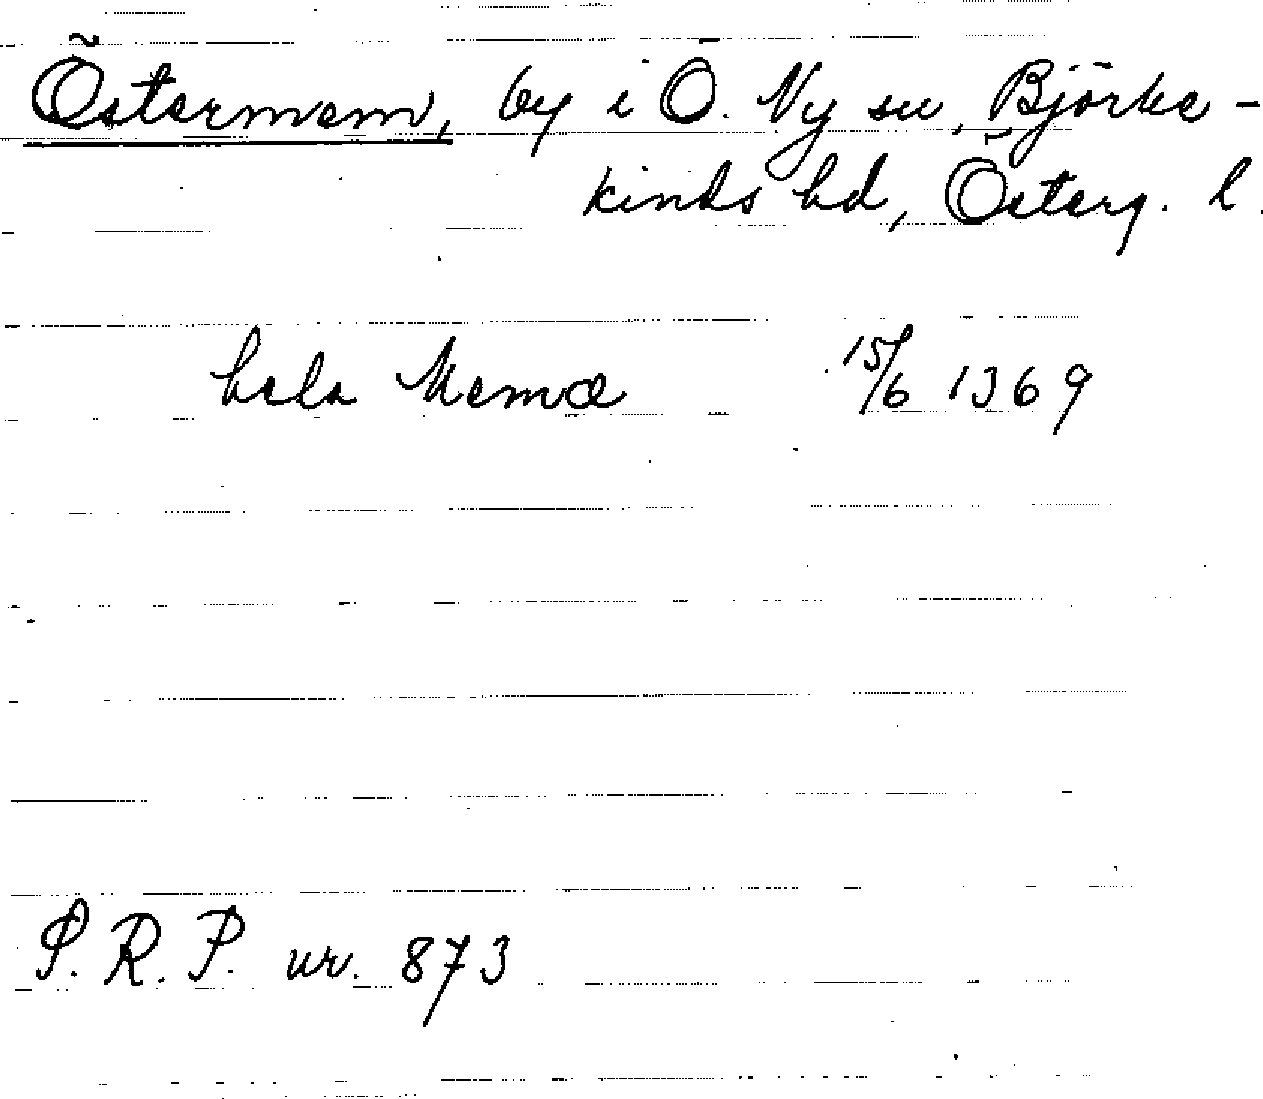 Östermem, by i Ö. Ny sn, Björke-
kinds hd, Österg. l.
hela Memæ 15/6 1369
S. R. P. nr. 873